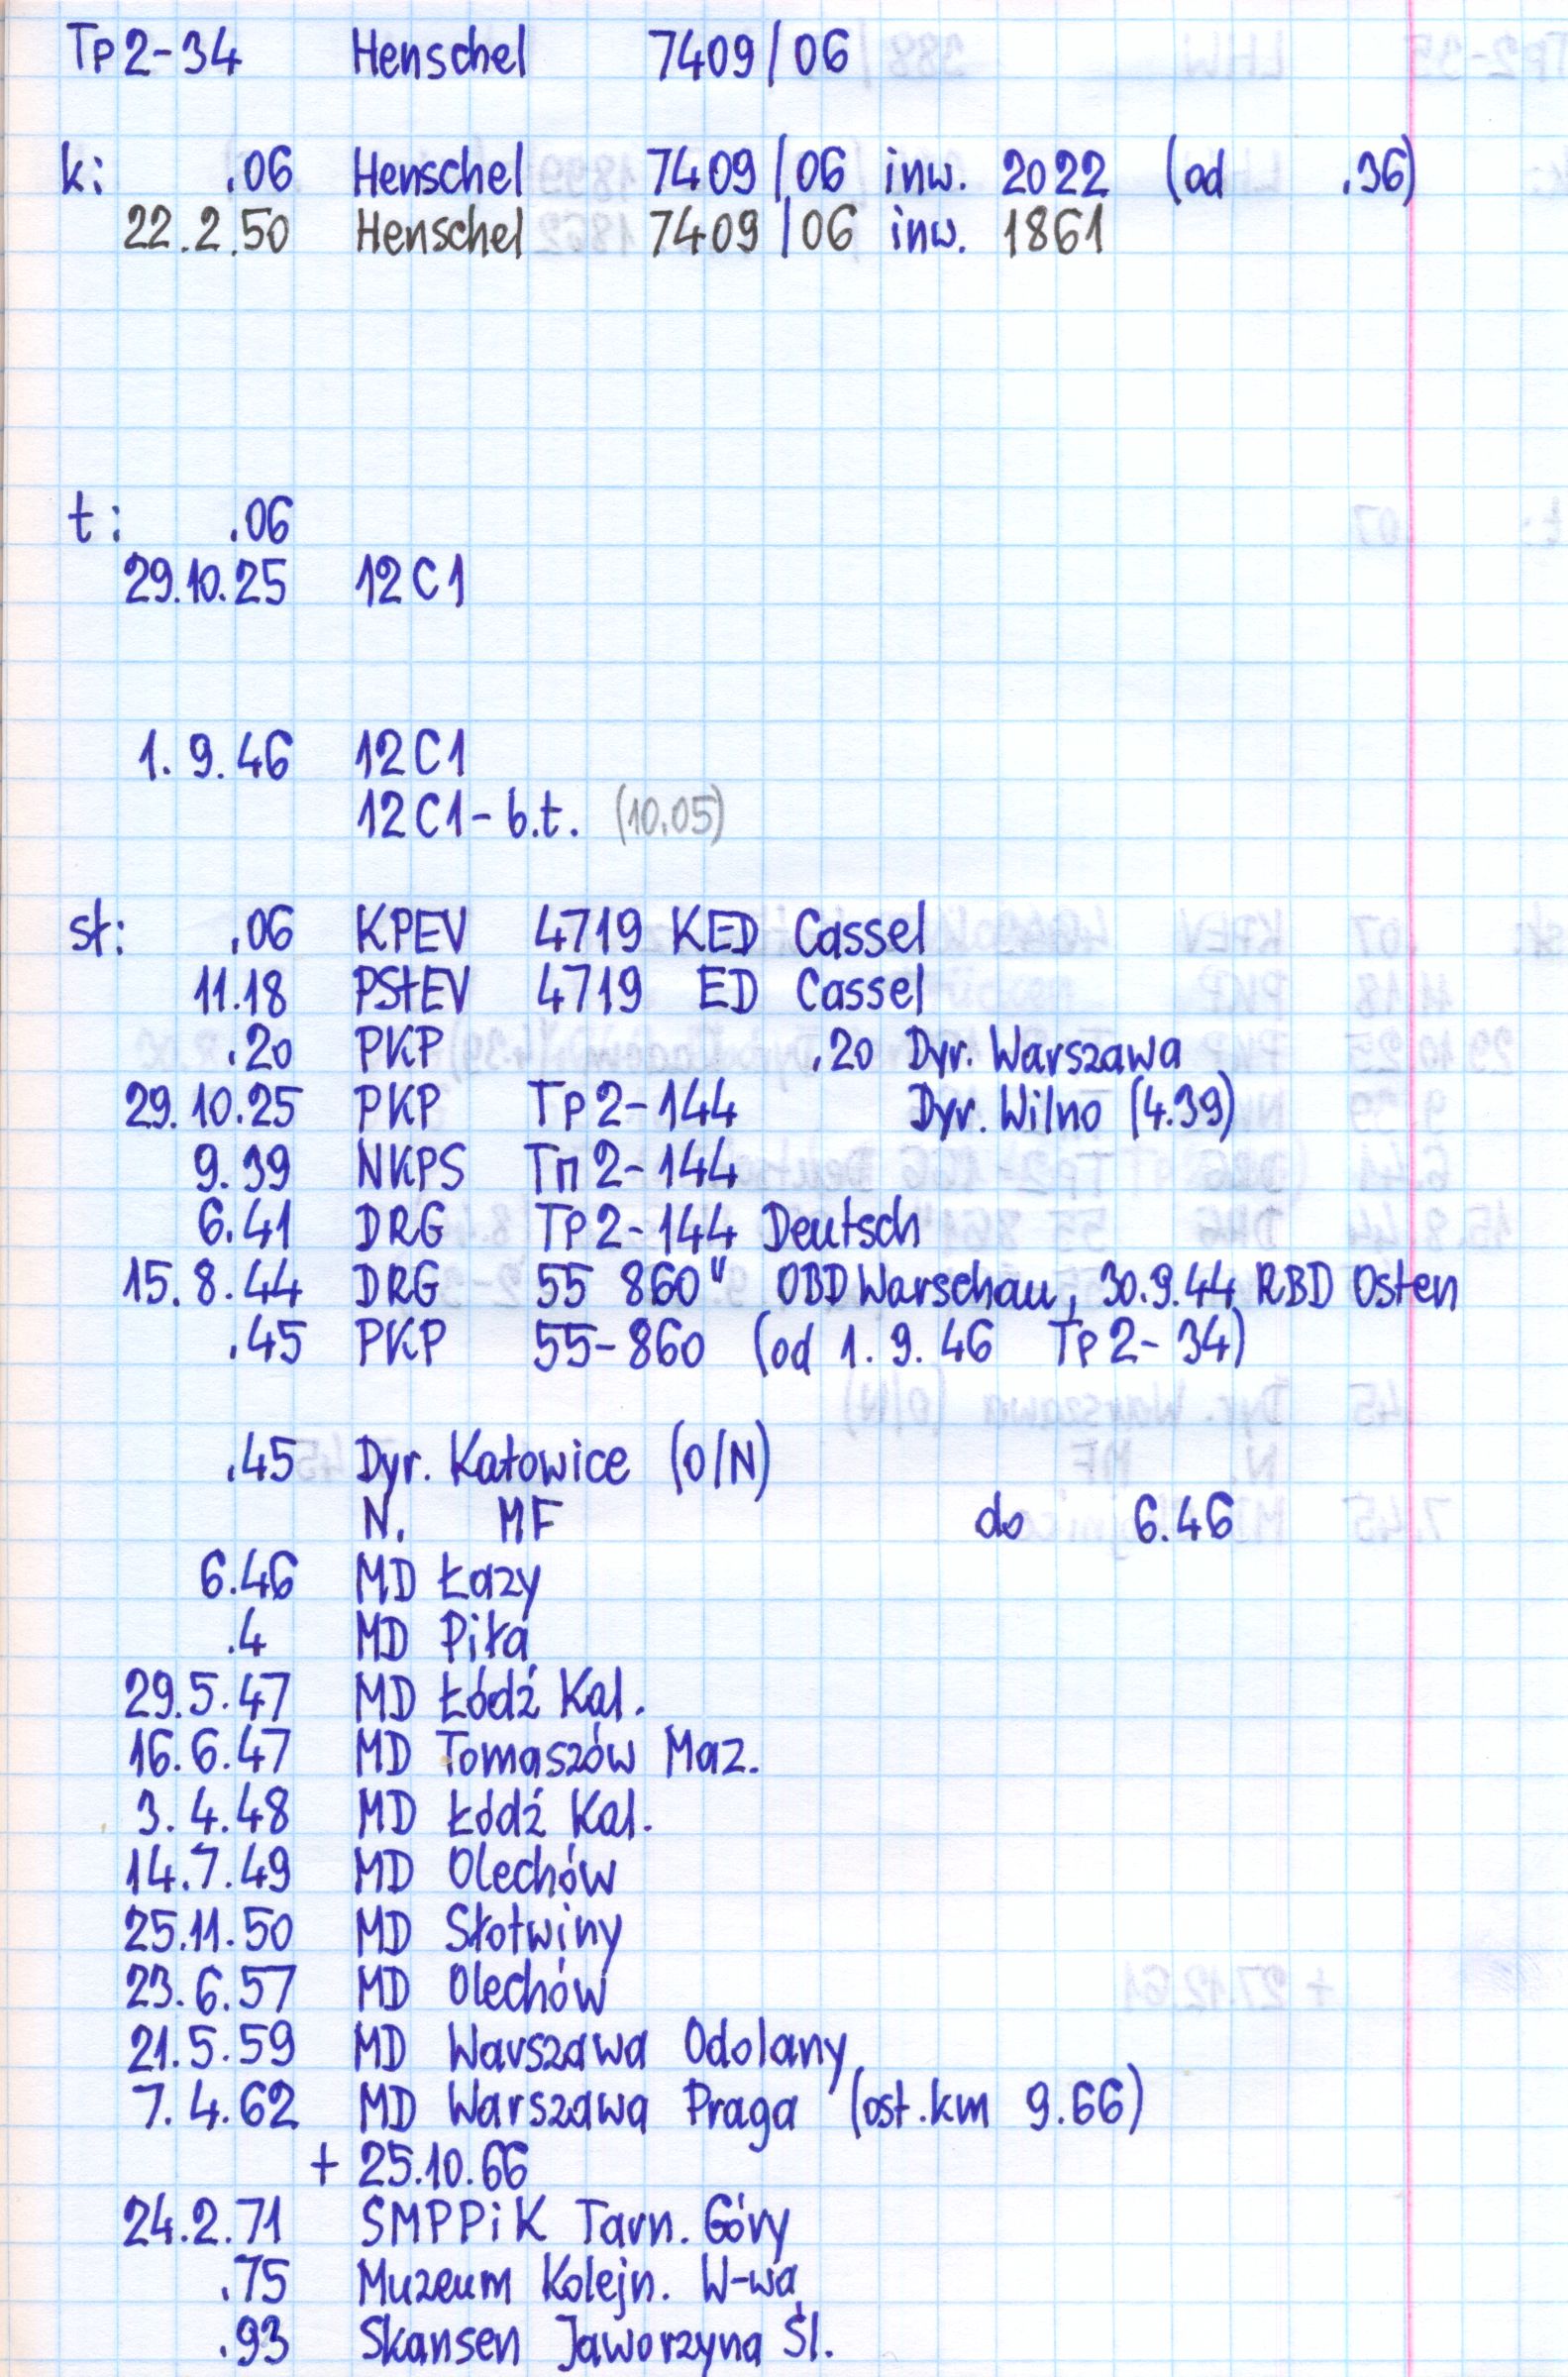 Tp2-34 Henschel 7409/06
k: .06 Henschel 7409/06 inw. 2022 (od .36)
22.2.50 Henschel 7409/06 inw. 1861
t: .06
29.10.25 12C1
1.9.46 12C1
12C1-b.t. (10.05)
st: .06 KPEV 4719 KED Cassel
11.18 PStEV 4719 ED Cassel
.20 PKP .20 Dyr. Warszawa
29.10.25 PKP Tp2-144 Dyr. Wilno (4.39)
9.39 NKPS Тп2-144
6.41 DRG Tp2-144 Deutsch
15.8.44 DRG 55 860" OBD Warschau, 30.9.44 RBD Osten
.45 PKP 55-860 (od 1.9.46 Tp2-34)
.45 Dyr. Katowice (O/N)
N. MF do 6.46
6.46 MD Łazy
.4 MD Piła
29.5.47 MD Łódź Kal.
16.6.47 MD Tomaszów Maz.
3.4.48 MD Łódź Kal.
14.7.49 MD Olechów
25.11.50 MD Słotwiny
23.6.57 MD Olechów
21.5.59 MD Warszawa Odolany
7.4.62 MD Warszawa Praga (ost.km 9.66)
+ 25.10.66
24.2.71 SMPPiK Tarn. Góry
.75 Muzeum Kolejn. W-wa
.93 Skansen Jaworzyna Śl.